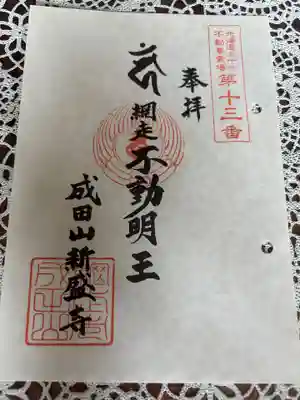 北海道三十六
不動尊霊場
第十三番
奉拝
網走不動明王
成田山新盛寺